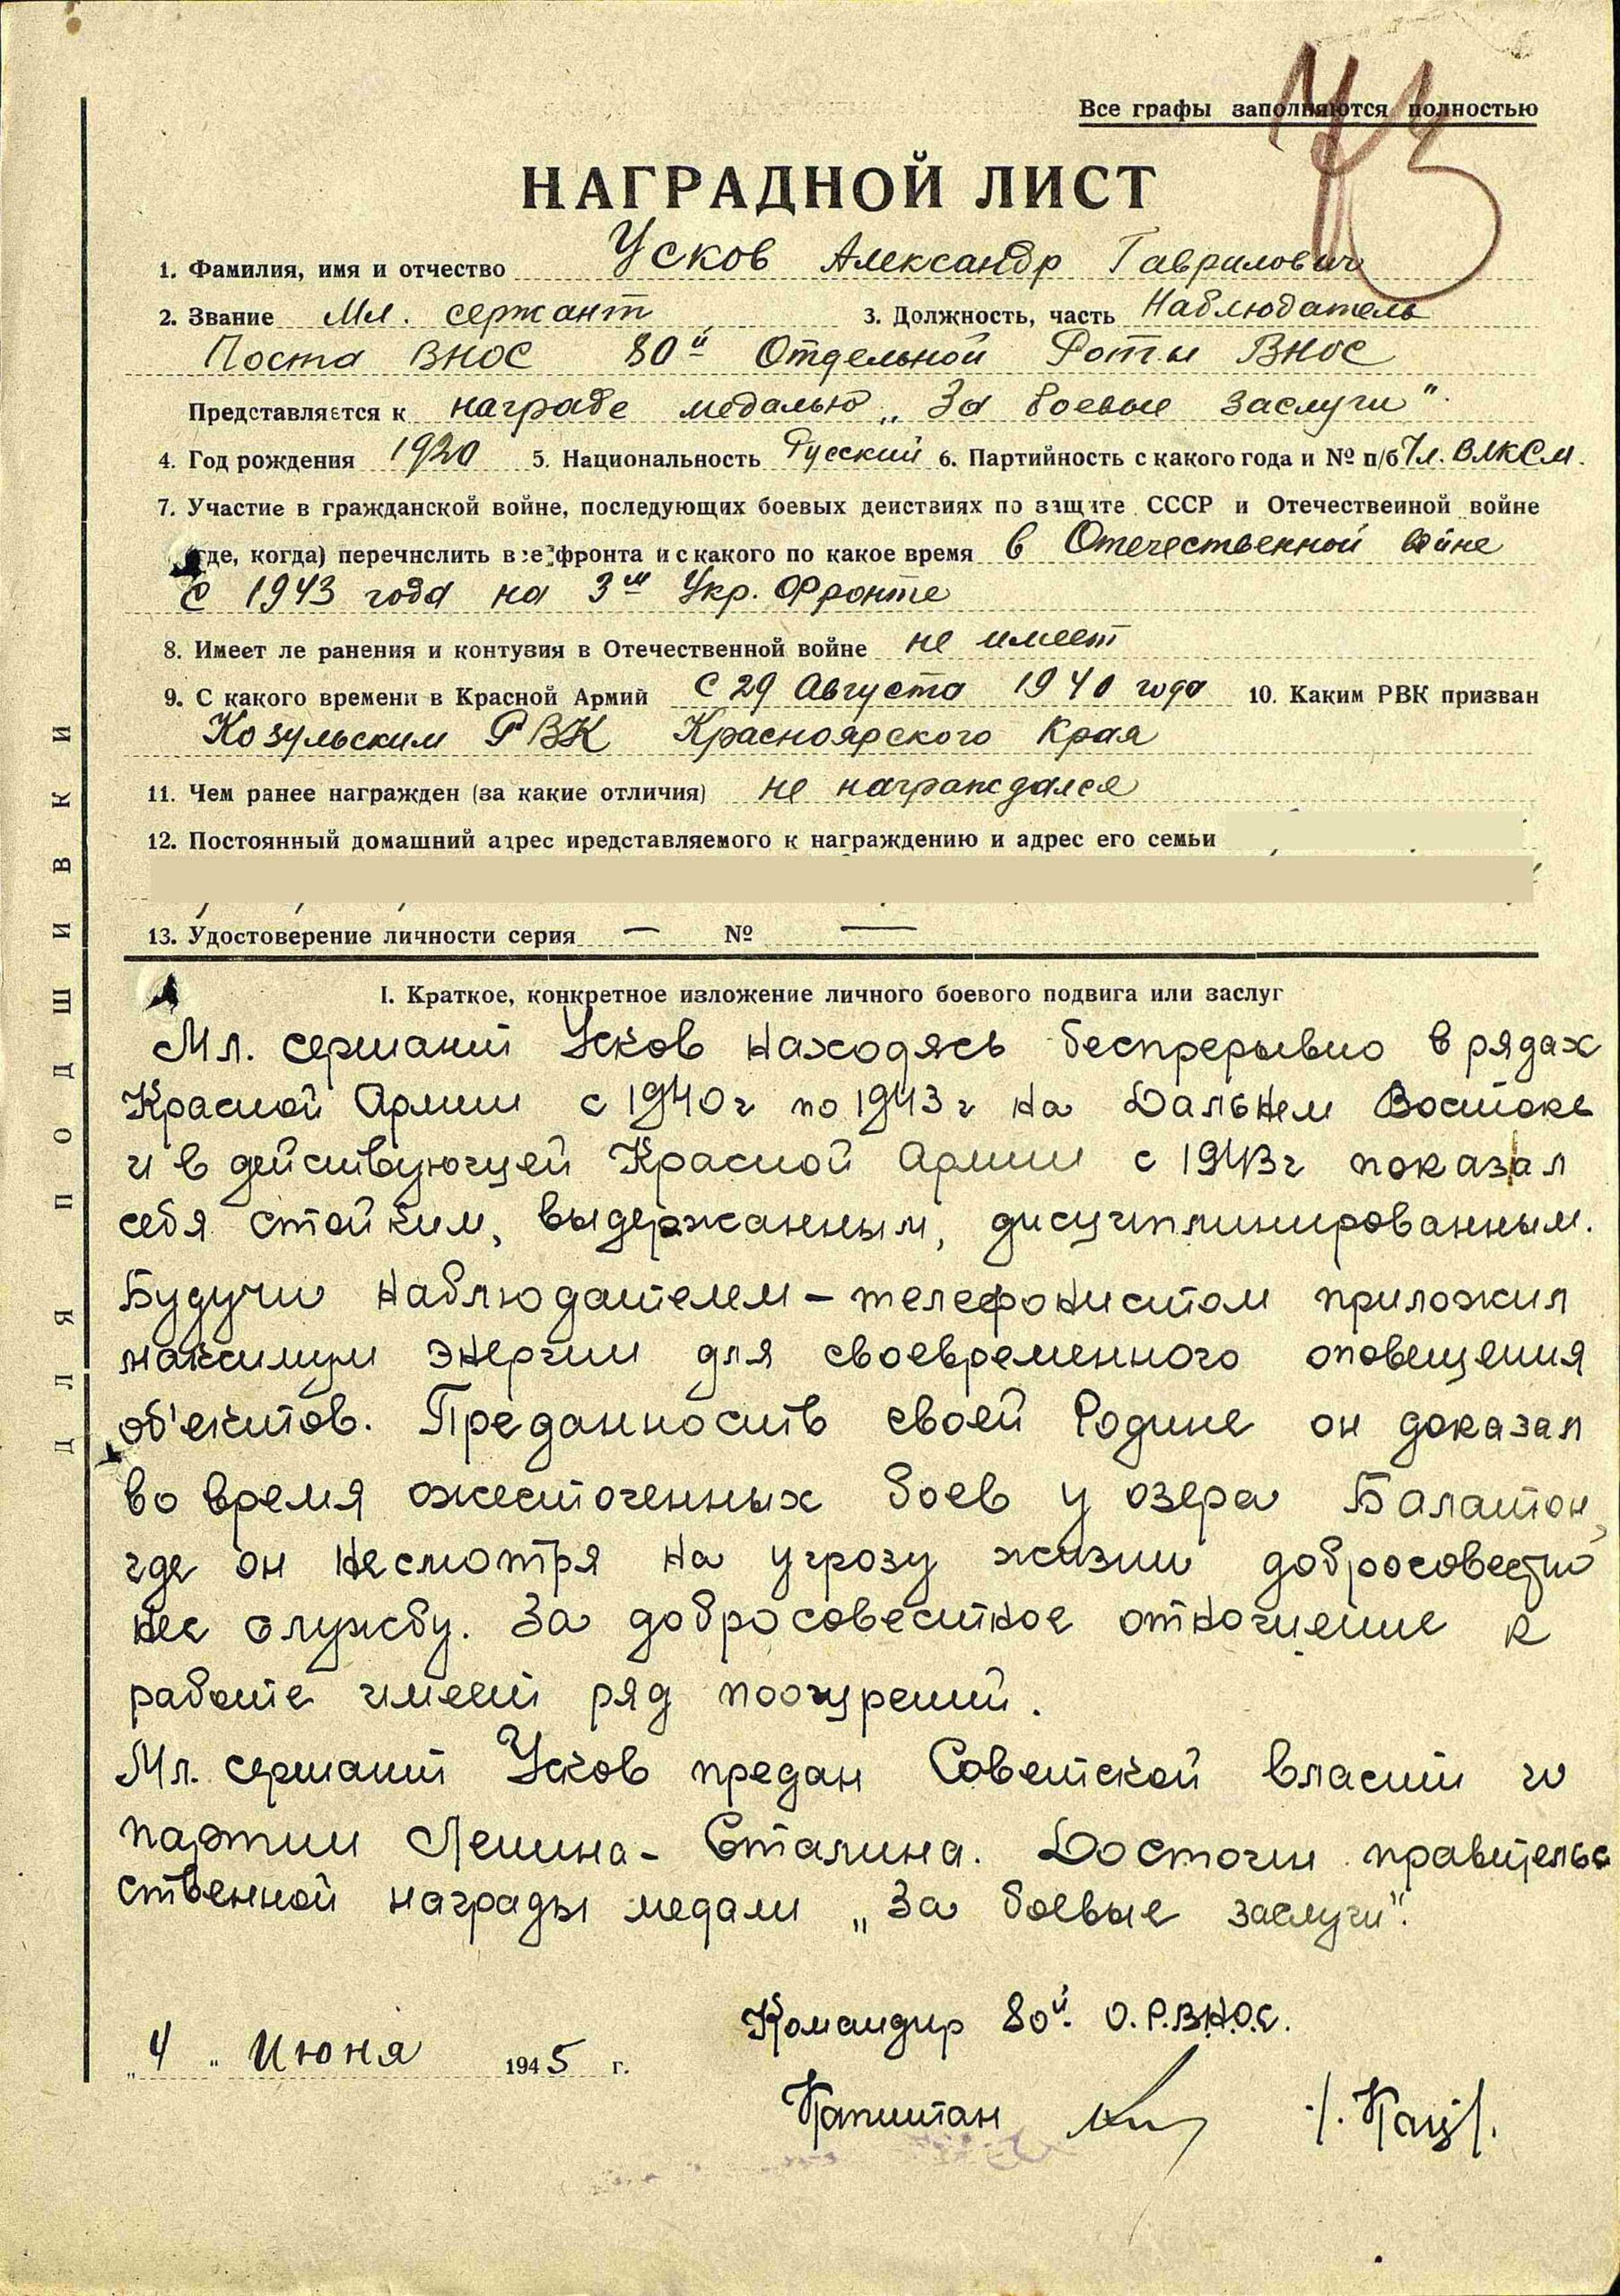 Все графы заполняются полностью
НАГРАДНОЙ ЛИСТ
1. Фамилия, имя и отчество Усков Александр Гаврилович
2. Звание Мл. сержант 3. Должность, часть Наблюдатель
Поста ВНОС 80й Отдельной Роты ВНОС
Представляется к награде медалью „За боевые заслуги".
4. Год рождения 1920 5. Национальность Русский 6. Партийность с какого года и № п/б Чл. ВЛКСМ.
7. Участие в гражданской войне, последующих боевых действиях по защите СССР и Отечественной войне
где, когда) перечнслить все фронта и с какого по какое время в Отечественной войне
с 1943 года на 3м Укр. Фронте
8. Имеет ле ранения и контузия в Отечественной войне не имеет
9. С какого времени в Красной Армий С 29 Августа 1940 года 10. Каким РВК призван
Козульским РВК Красноярского Края
11. Чем ранее награжден (за какие отличия) не награждался
12. Постоянный домашний адрес иредставляемого к награждению и адрес его семьи
13. Удостоверение личности серия — № —
I. Краткое, конкретное изложение личного боевого подвига или заслуг
Мл. сержант Усков находясь беспрерывно в рядах
Красной Армии с 1940г по 1943г на Дальнем Востоке
и в действующей Красной Армии с 1943г показал
себя стойким, выдержанным, дисциплинированным.
Будучи наблюдателем – телефонистом приложил
максимум энергии для своевременного оповещения
об'ектов. Преданность своей Родине он доказал
во время ожесточенных боев у озера Балатон,
где он несмотря на угрозу жизни добросовестно
нес службу. За добросовестное отношение к
работе имеет ряд поощрений.
Мл. сержант Усков предан Советской власти и
партии Ленина – Сталина. Достоин правительс
ственной награды медали „За боевые заслуги".
Командир 80й О.Р.В.Н.О.С.
„4" Июня 1945 г.
Капитан /. Кац /.
ДЛЯ ПОДШИВКИ